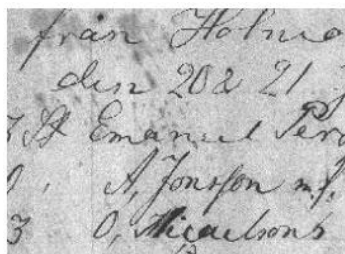 från Holmö
den 20 & 21
3 St Emanuel Pers
0 " A, Jonsson m.f.
3 O, Micaelsons